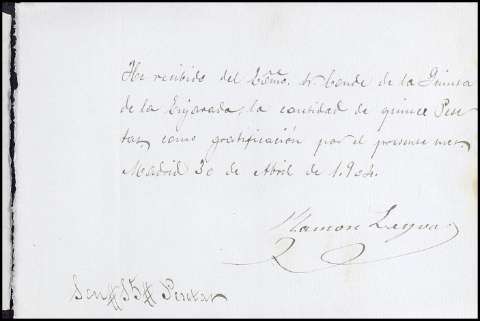 He recibido del Exmo. Sr. Conde de la Quinta
de la Enjarada, la cantidad de quince Pese-
tas como gratificación por el presente mes.
Madrid 30 de Abril de 1.904.
Ramon
Son # 15 # Pesetas